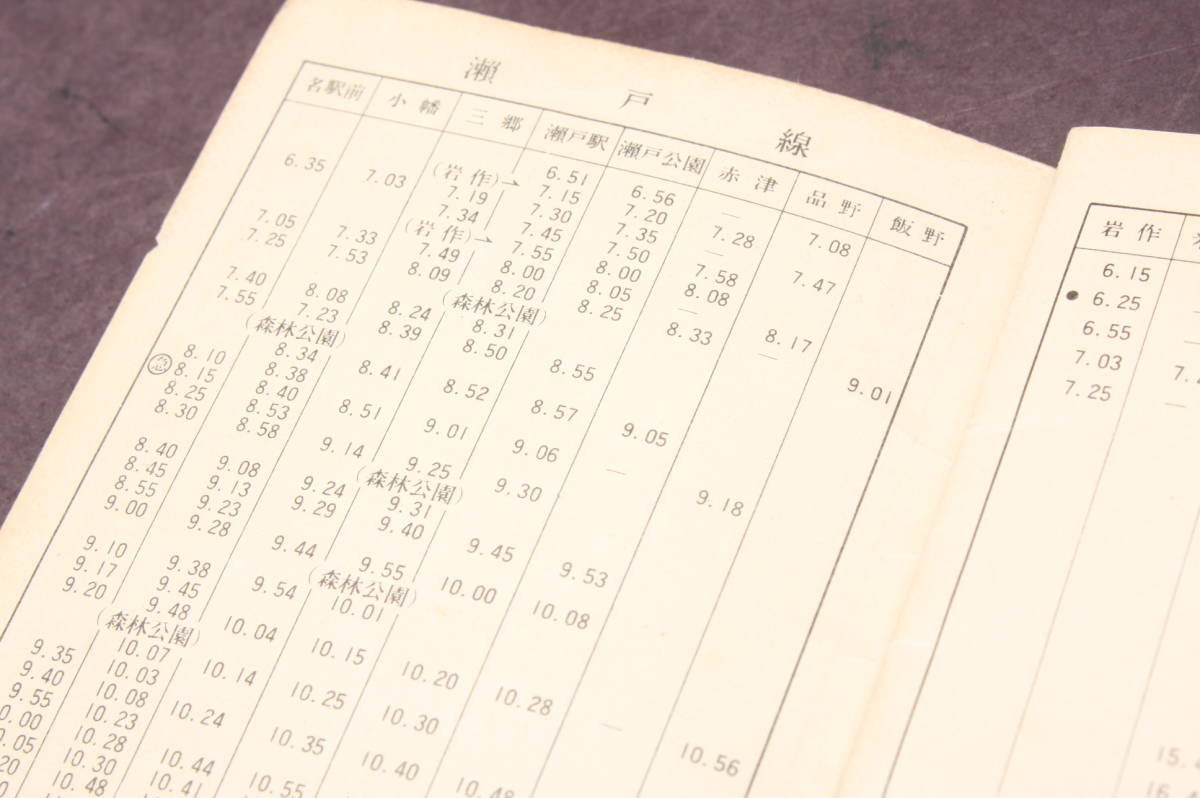 瀬戸線
名駅前 小幡 三郷 瀬戸駅 瀬戸公園 赤津 品野 飯野
6.51 6.56 — 7.08
(岩作)→ 7.15 7.20 7.28
6.35 7.03 7.19 7.30 7.35 — 7.47
7.34 7.45 7.50 7.58
(岩作)→ 7.55 8.00 8.08
7.05 7.33 7.49 8.00 8.05 — 8.17
7.25 7.53 8.09 8.20 8.25 8.33 — 9.01
(森林公園)
7.40 8.08 8.24 8.31
7.55 7.23 8.39 8.50 8.55
(森林公園)
8.34 8.41 8.52 8.57 9.05
8.10 8.38
㊝8.15 8.40 8.51 9.01 9.06 — 9.18
8.25 8.53
8.30 8.58 9.14 9.25 9.30
(森林公園)
8.40 9.08 9.24 9.31
8.45 9.13 9.29 9.40 9.45 9.53
8.55 9.23
9.00 9.28 9.44 9.55 10.00 10.08
(森林公園)
9.10 9.38 9.54 10.01
9.17 9.45
9.20 9.48 10.04 10.15 10.20 10.28 — 10.56
(森林公園)
10.07 10.14 10.25 10.30
9.35 10.03
9.40 10.08 10.24 10.35 10.40 10.48
9.55 10.23
0.00 10.28 10.44 10.55
.05 10.30 10.41
20 10.48
岩作
6.15
● 6.25 —
6.55
7.03 7.
7.25 —
15.
16.